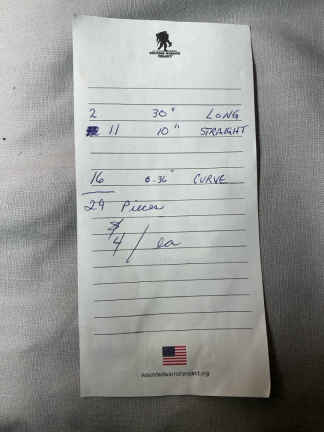 WOUNDED WARRIOR
PROJECT
2 30" LONG
11 10" STRAIGHT
16 6-36" CURVE
29 Pieces
$4/ea
woundedwarriorproject.org